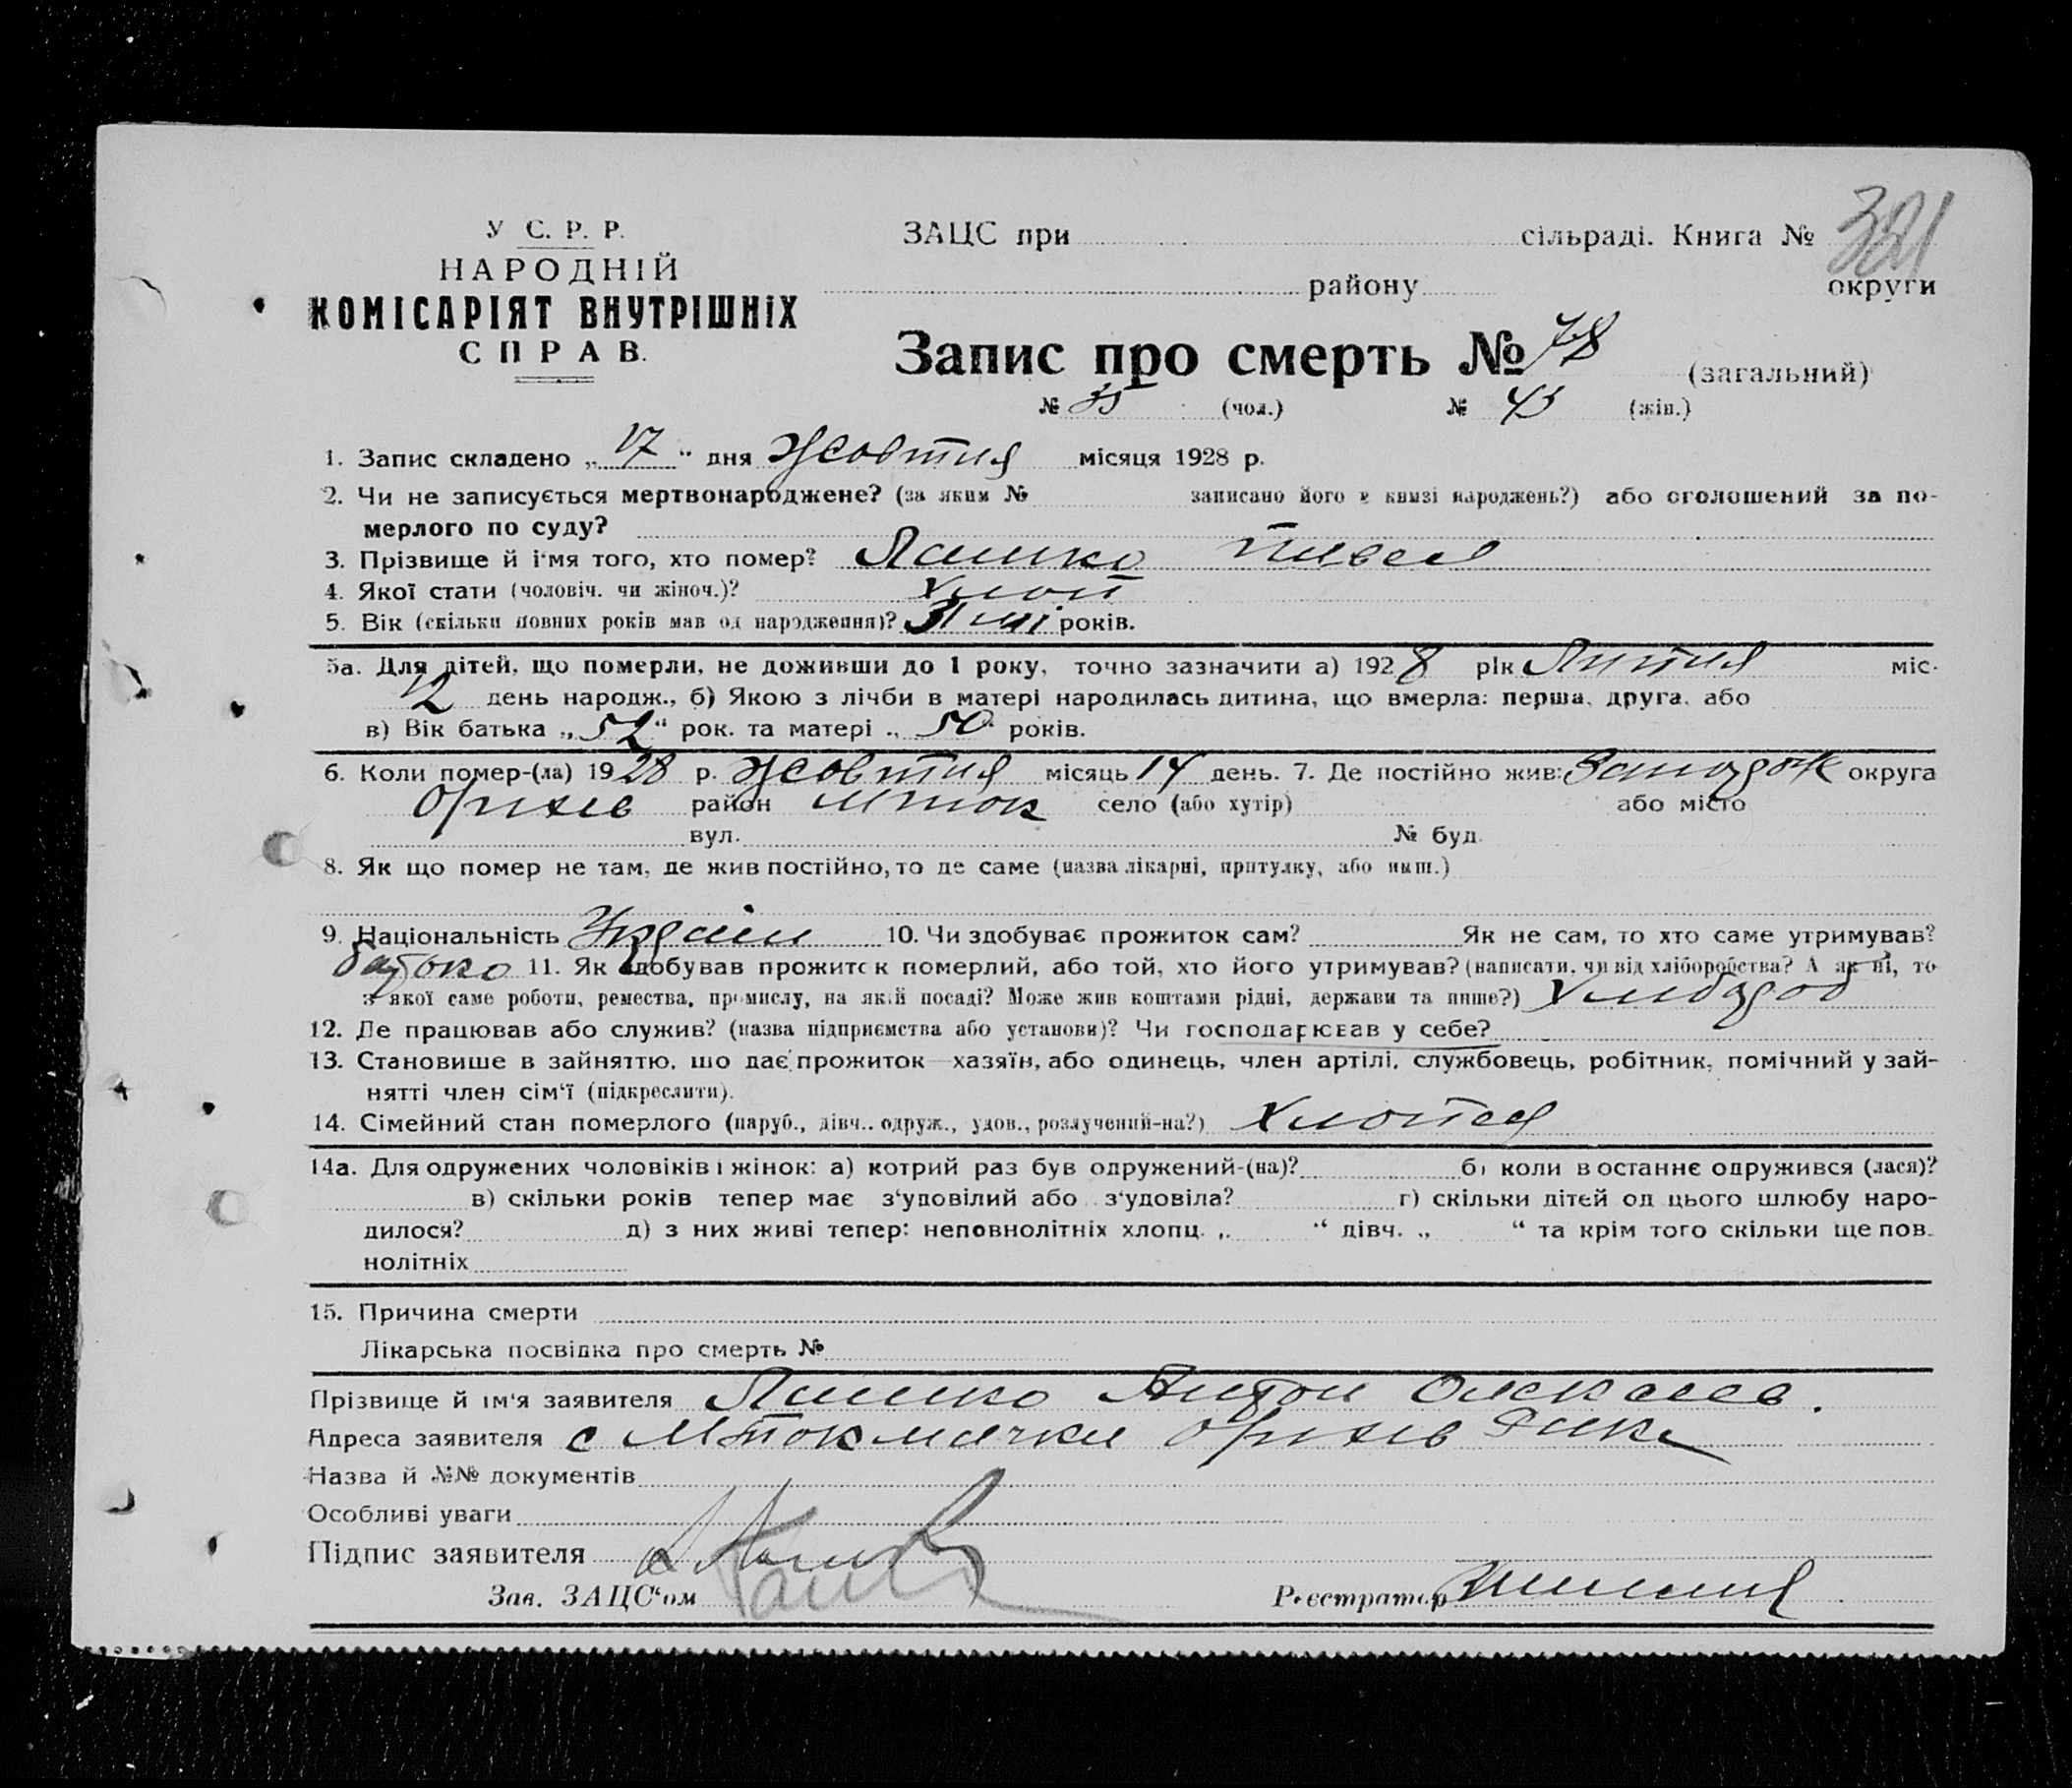 У С. Р. Р.
НАРОДНІЙ
КОМІСАРІЯТ ВНУТРІШНІХ
СПРАВ.
ЗАЦС при сільраді. Книга №
району округи
Запис про смерть № 78 (загальний)
№ 35 (чол.) № 43 (жін.)
1. Запис складено „17" дня Жовтня місяця 1928 р.
2. Чи не записується мертвонароджене? (за яким № записано його в книзі народжень?) або оголошений за по-
мерлого по суду?
3. Прізвище й ім'я того, хто помер? Ляшко
4. Якої стати (чоловіч. чи жіноч.)? Хлоп
5. Вік (скільки повних років мав од народження)? 3 років.
5а. Для дітей, що померли, не доживши до 1 року, точно зазначити а) 1928 рік Липня міс.
12 день народж., б) Якою з лічби в матері народилась дитина, що вмерла: перша, друга, або
в) Вік батька „52" рок. та матері „50" років.
6. Коли помер-(ла) 1928 р. Жовтня місяць 14 день. 7. Де постійно жив: Запорож округа
Оріхів район Мток село (або хутір) або місто
вул. № буд.
8. Як що помер не там, де жив постійно, то де саме (назва лікарні, притулку, або инш.)
9. Національність Україн 10. Чи здобуває прожиток сам? Як не сам, то хто саме утримував?
батько 11. Як здобував прожиток померлий, або той, хто його утримував? (написати, чи від хліборобства? А як ні, то
з якої саме роботи, ремества, промислу, на якій посаді? Може жив коштами рідні, держави та инше?) Хлібороб
12. Де працював або служив? (назва підприємства або установи)? Чи господарював у себе?
13. Становище в зайняттю, що дає прожиток—хазяїн, або одинець, член артілі, службовець, робітник, помічний у зай-
нятті член сім'ї (підкреслити).
14. Сімейний стан померлого (паруб., дівч., одруж., удов., розлучений-на?) Хлопец
14а. Для одружених чоловіків і жінок: а) котрий раз був одружений-(на)? б) коли в останнє одружився (лася)?
в) скільки років тепер має з'удовілий або з'удовіла? г) скільки дітей од цього шлюбу наро-
дилося? д) з них живі тепер: неповнолітніх хлопц. „ " дівч. „ " та крім того скільки ще пов-
нолітніх
15. Причина смерти
Лікарська посвідка про смерть №
Прізвище й ім'я заявителя Ляшко Антон Олексеев.
Адреса заявителя с Мтокмачка Оріхів Рики
Назва й №№ документів
Особливі уваги
Підпис заявителя
Зав. ЗАЦС'ом Реєстратор